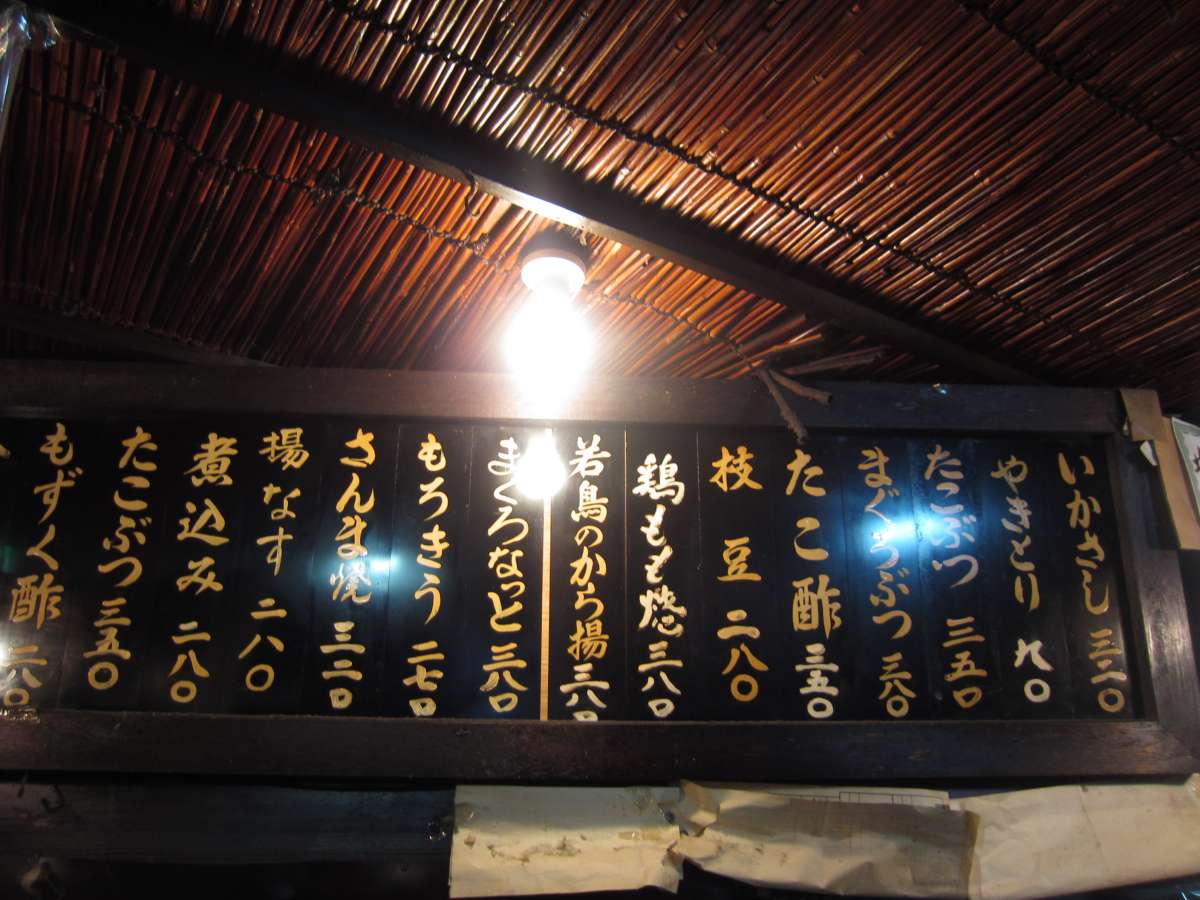 いかさし 三二〇
やきとり 九〇
たこぶつ 三五〇
まぐろぶつ 三八〇
たこ酢 三五〇
枝豆 二八〇
鶏もも焼 三八〇
若鳥のから揚 三八〇
まぐろなっと 三八〇
もろきう 二七〇
さんま焼 三二〇
揚なす 二八〇
煮込み 二八〇
たこぶつ 三五〇
もずく酢 二八〇